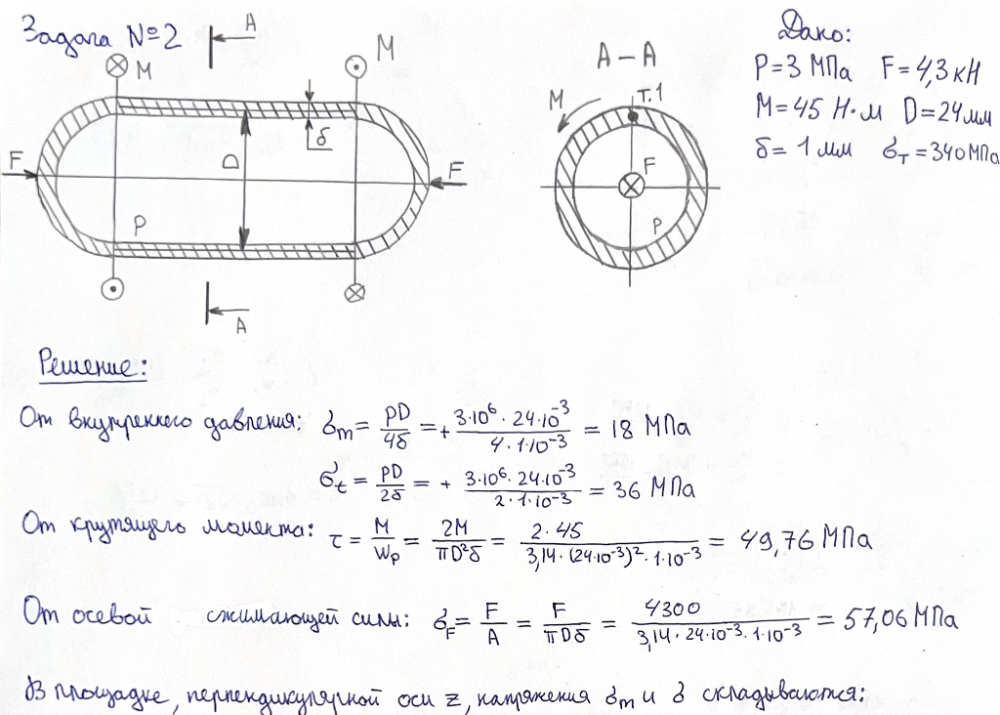 Задача №2
A
M
M
F
D
δ
F
P
A
A – A
M
т.1
F
P
Дано:
P=3 МПа F=4,3 кН
M=45 Н·м D=24мм
δ= 1 мм σт=340МПа
Решение:
От внутреннего давления: σm = PD/4δ = + 3·10⁶·24·10⁻³/4·1·10⁻³ = 18 МПа
σt = PD/2δ = + 3·10⁶·24·10⁻³/2·1·10⁻³ = 36 МПа
От крутящего момента: τ = M/Wp = 2M/πD²δ = 2·45/3,14·(24·10⁻³)²·1·10⁻³ = 49,76 МПа
От осевой сжимающей силы: σF = F/A = F/πDδ = 4300/3,14·24·10⁻³·1·10⁻³ = 57,06 МПа
В площадке, перпендикулярной оси z, напряжения σm и σ складываются: